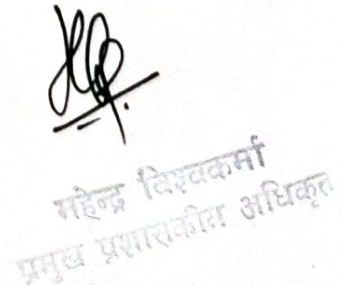 महेन्द्र विश्वकर्मा
प्रमुख प्रशासकीय अधिकृत